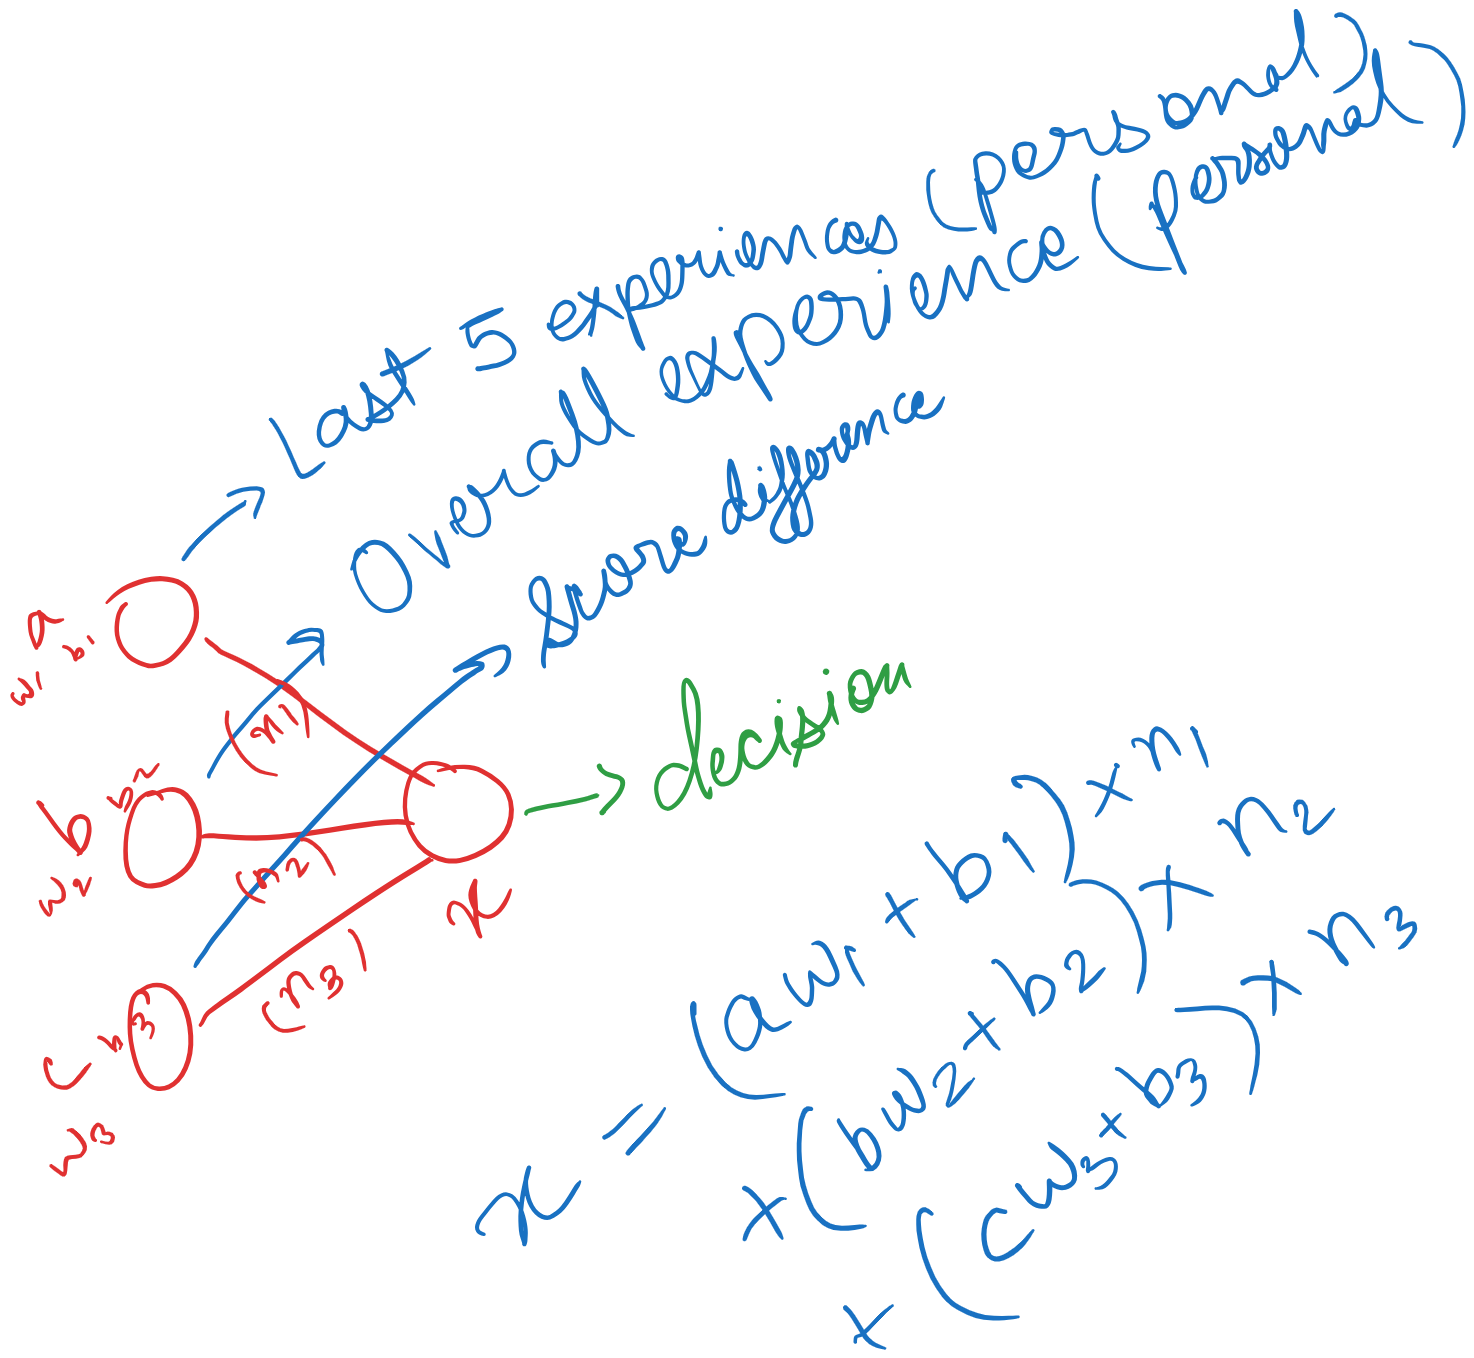 Last 5 experiences (personal)
Overall experience (personal)
Score difference
a
w1 b1
(n1)
b b2
w2
(n2)
x
→ decision
c b3
w3
(n3)
x = (aw1 + b1) x n1
+ (bw2 + b2) x n2
+ (cw3 + b3) x n3